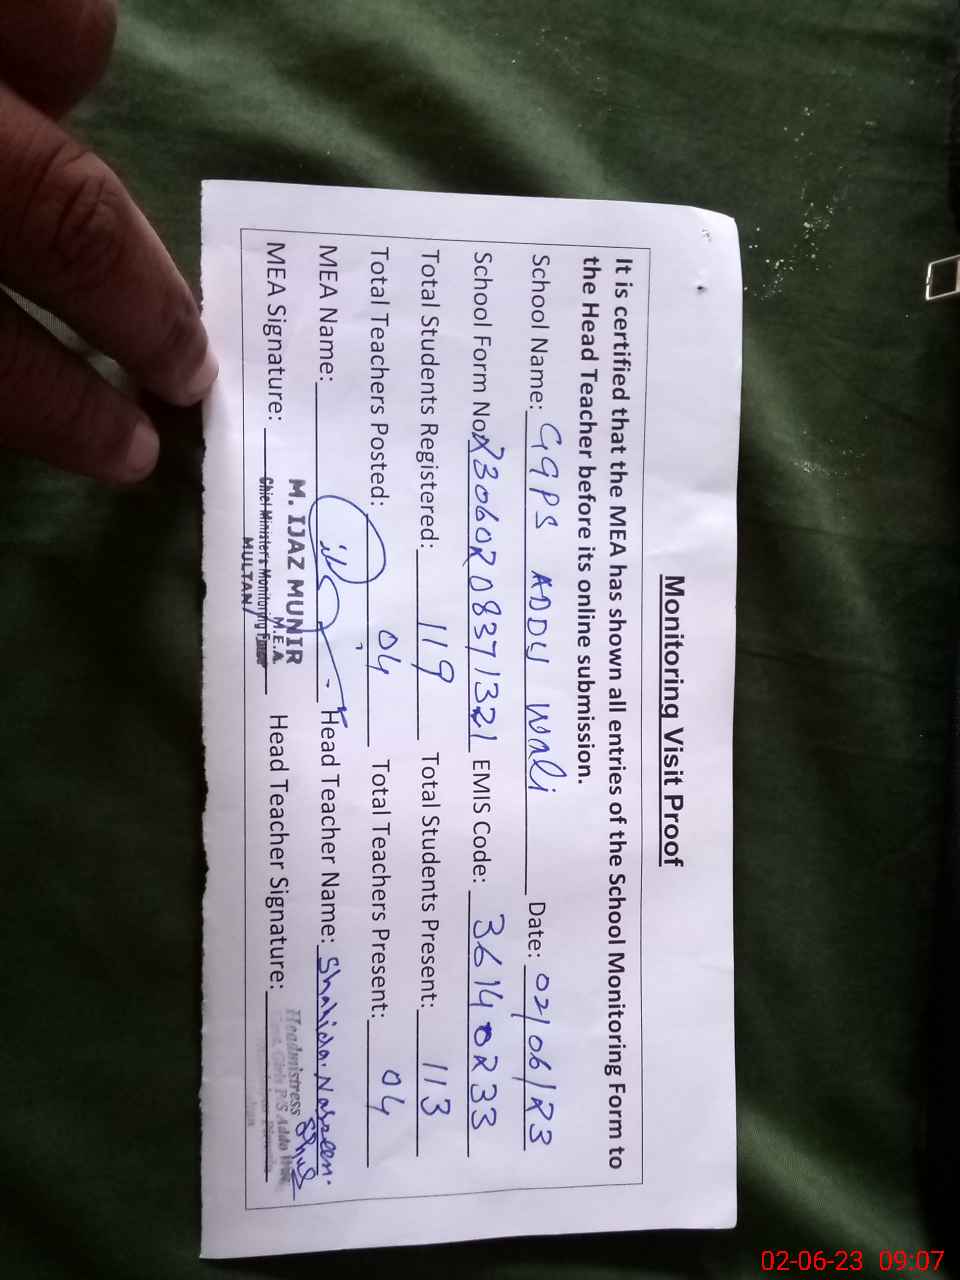 Monitoring Visit Proof
It is certified that the MEA has shown all entries of the School Monitoring Form to
the Head Teacher before its online submission.
School Name: GGPS ADDU Wali Date: 02/06/23
School Form No: 23060208371321 EMIS Code: 36140233
Total Students Registered: 119 Total Students Present: 113
Total Teachers Posted: 04 Total Teachers Present: 04
MEA Name: Head Teacher Name: Shahida Nasreen.
M. IJAZ MUNIR
M.E.A.
MEA Signature: Head Teacher Signature:
Chief Minister's Monitoring Force
MULTAN
Headmistress
Girls P/S Addo Wali
02-06-23 09:07